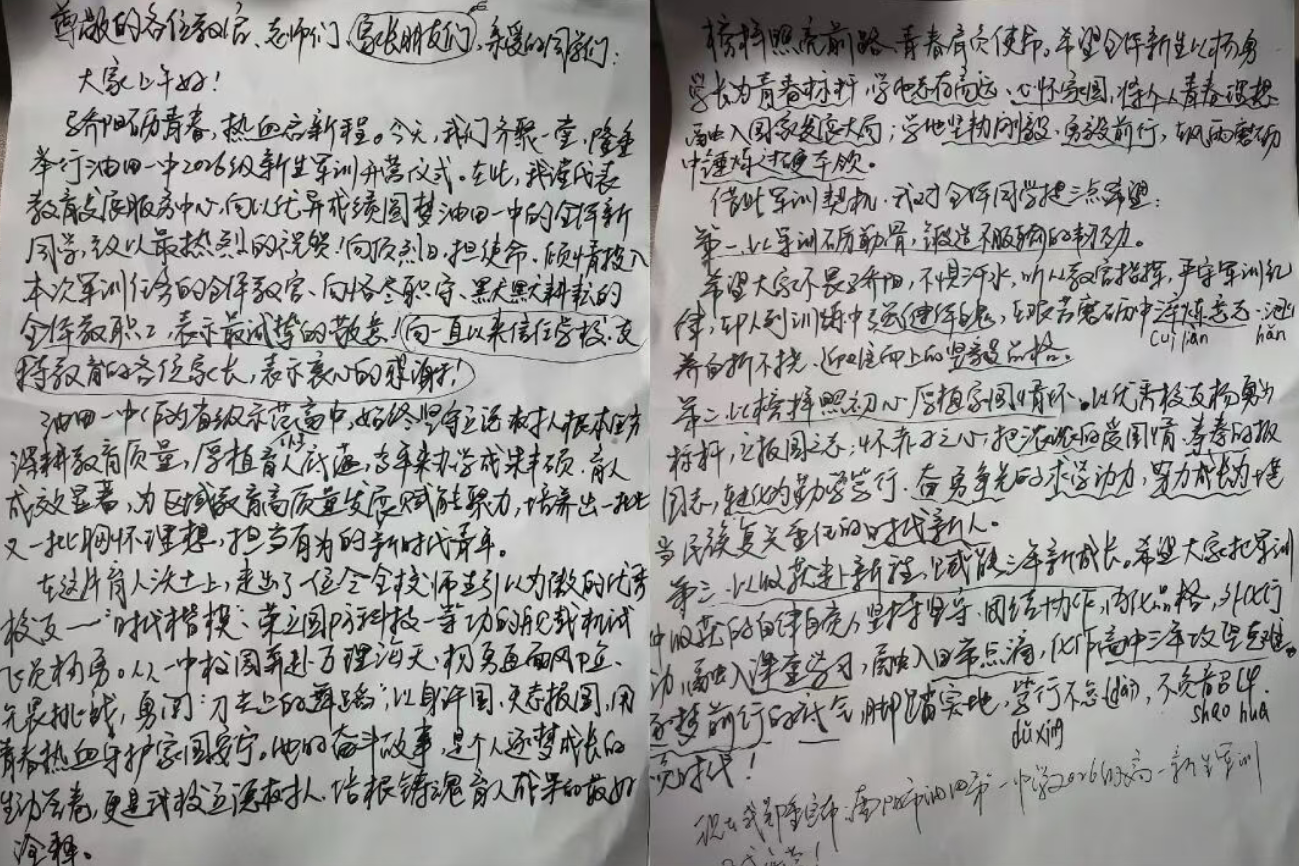 尊敬的各位教官、老师们、家长朋友们、亲爱的同学们:
大家上午好!
骄阳砺青春,热血启新程。今天,我们齐聚一堂,隆重
举行油田一中2026级新生军训开营仪式。在此,我谨代表
教育发展服务中心,向以优异成绩圆梦油田一中的全体新
同学,致以最热烈的祝贺!向顶烈日、担使命、倾情投入
本次军训任务的全体教官、向恪尽职守、默默耕耘的
全体教职工,表示最诚挚的敬意!向一直以来信任学校、支
持教育的各位家长,表示衷心的感谢!
油田一中作为省级示范高中,始终坚守立德树人根本任务
深耕教育质量,厚植育人底蕴,多年来办学成果丰硕,育人
成效显著,为区域教育高质量发展赋能聚力,培养出一批
又一批胸怀理想,担当有为的新时代青年。
在这片育人沃土上,走出了一位令全校师生引以为傲的优秀
校友——"时代楷模"、荣立国防科技一等功的舰载机试
飞员杨勇。从一中校园奔赴万里海天,杨勇直面风险、
无畏挑战,勇闯"刀尖上的舞蹈";以身许国,矢志报国,用
青春热血守护家国安宁。他的奋斗故事,是个人逐梦成长的
生动答卷,更是我校立德树人、培根铸魂育人成果的最好
诠释。
榜样照亮前路,青春肩负使命。希望全体新生以杨勇
学长为青春标杆,学他志存高远、心怀家国,将个人青春理想
融入国家发展大局;学他坚韧刚毅、勇毅前行,在风雨磨砺
中锤炼过硬本领。
借此军训契机,我对全体同学提三点希望:
第一,以军训砺筋骨,锻造不服输的韧劲。
希望大家不畏骄阳,不惧汗水,听从教官指挥,严守军训纪
律,在队列训练中强健体魄,在艰苦磨砺中淬炼意志,涵
cuì liàn hán
养百折不挠、迎难而上的坚毅品格。
第二,以榜样照初心,厚植家国情怀。以优秀校友杨勇为
标杆,立报国之志;怀赤子之心,把浓浓的爱国情、拳拳的报
国志,转化为勤学笃行、奋勇争先的求学动力,努力成长为堪
当民族复兴重任的时代新人。
第三,以收获赴新程,赋能三年新成长。希望大家把军训
中收获的自律自强、坚持坚守、团结协作,内化品格,外化行
动,融入课堂学习,融入日常点滴,化作高中三年攻坚克难、
逐梦前行的底气,脚踏实地,笃行不怠(dài),不负韶华、
dǔ xíng sháo huá
不负时代!
现在我郑重宣布:南阳市油田第一中学2026级高一新生军训